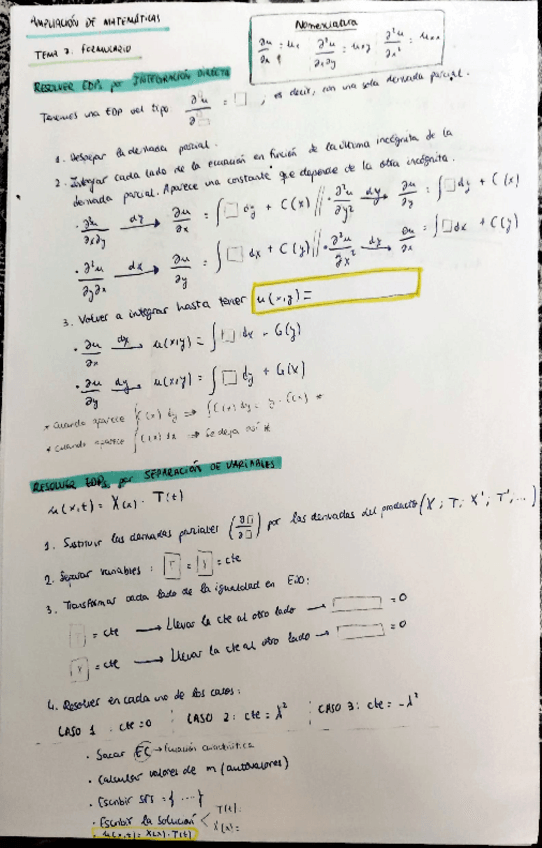 AMPLIACIÓN DE MATEMÁTICAS
TEMA 7: FORMULARIO
Nomenclatura
∂u/∂x = uₓ ∂²u/∂x∂y = uₓy ∂²u/∂x² = uₓₓ
RESOLVER EDPs por INTEGRACIÓN DIRECTA
Tenemos una EDP del tipo ∂²u/∂□ = □ ; es decir, con una sola derivada parcial.
1. Despejar la derivada parcial.
2. Integrar cada lado de la ecuación en función de la última incógnita de la
derivada parcial. Aparece una constante que depende de la otra incógnita.
· ∂²u/∂x∂y dy→ ∂u/∂x = ∫□ dy + C(x) // · ∂²u/∂y² dy→ ∂u/∂y = ∫□ dy + C(x)
· ∂²u/∂y∂x dx→ ∂u/∂y = ∫□ dx + C(y) // · ∂²u/∂x² dx→ ∂u/∂x = ∫□ dx + C(y)
3. Volver a integrar hasta tener u(x,y) =
· ∂u/∂x dx→ u(x,y) = ∫□ dx + G(y)
· ∂u/∂y dy→ u(x,y) = ∫□ dy + G(x)
* Cuando aparece ∫C(x) dy ⇒ ∫C(x) dy = y · C(x) *
* Cuando aparece ∫C(x) dx ⇒ Se deja así *
RESOLVER EDPs por SEPARACIÓN DE VARIABLES
u(x,t) = X(x) · T(t)
1. Sustituir las derivadas parciales (∂□/∂□) por las derivadas del producto (X ; T ; X' ; T' , ...)
2. Separar variables : [T] = [X] = cte
3. Transformar cada lado de la igualdad en EDO:
[T] = cte → Llevar la cte al otro lado → □ = 0
[X] = cte → Llevar la cte al otro lado → □ = 0
4. Resolver en cada uno de los casos:
CASO 1 : cte = 0 CASO 2 : cte = λ² CASO 3 : cte = -λ²
· Sacar EC → Ecuación característica
· Calcular valores de m (autovalores)
· Escribir SFS = { .... }
· Escribir la solución < T(t) =
X(x) =
· u(x,t) = X(x) · T(t)